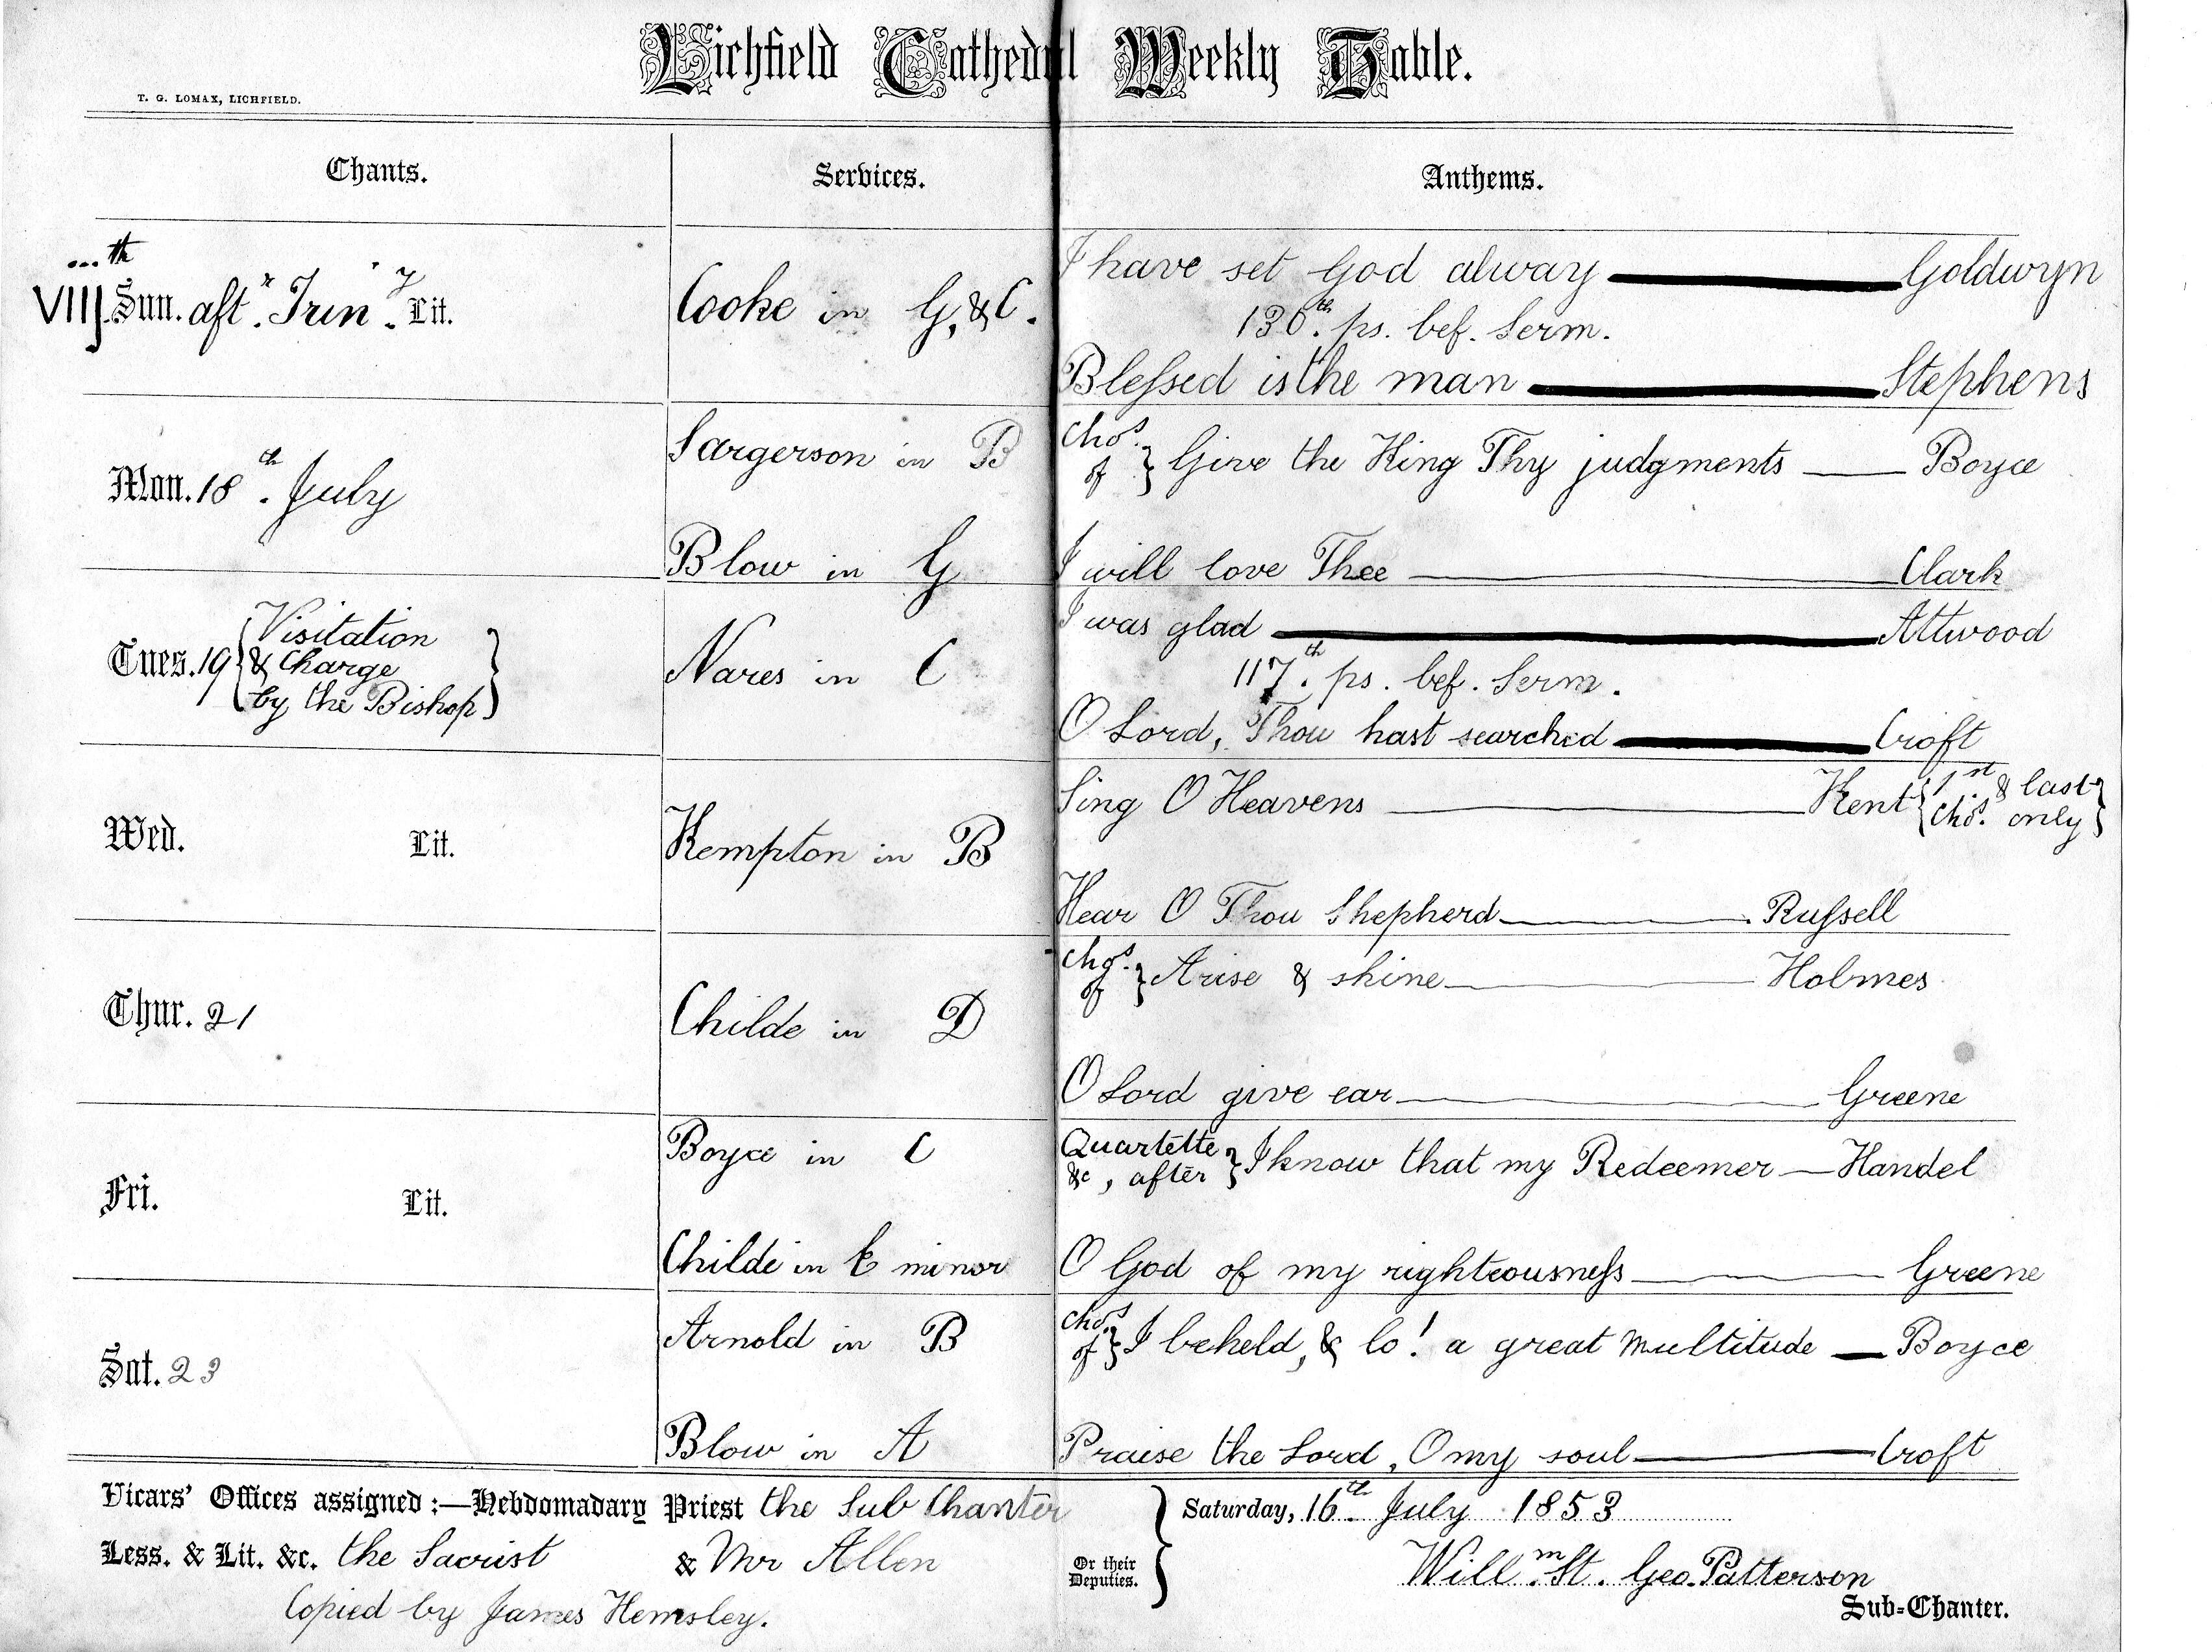 Lichfield Cathedral Weekly Table.
T. G. LOMAX, LICHFIELD.
Chants. Services. Anthems.
VIIJ...th Sun. aftr. Trin.y Lit. Cooke in G, & C. I have set God alway — Goldwyn
136th. ps. bef. Serm.
Blessed is the man — Stephens
Mon. 18th. July Sargerson in B Chos. of } Give the King Thy judgments — Boyce
Blow in G I will love Thee — Clark
Tues. 19 { Visitation & Charge by the Bishop } Nares in C I was glad — Attwood
117th. ps. bef. Serm.
O Lord, Thou hast searched — Croft
Wed. Lit. Kempton in B Sing O Heavens — Kent { 1st & last Chos. only }
Hear O Thou Shepherd — Russell
Thur. 21 Childe in D Chos. of } Arise & shine — Holmes
O Lord give ear — Greene
Fri. Lit. Boyce in C Quartette &c, after } I know that my Redeemer — Handel
Childe in E minor O God of my righteousness — Greene
Sat. 23 Arnold in B Chos. of } I beheld, & lo! a great multitude — Boyce
Blow in A Praise the Lord, O my soul — Croft
Vicars' Offices assigned:—Hebdomadary Priest the Sub Chanter
Less. & Lit. &c. the Sacrist & Mr Allen
Or their Deputies. }
Copied by James Hemsley.
Saturday, 16th. July 1853
Willm. St. Geo. Patterson
Sub-Chanter.